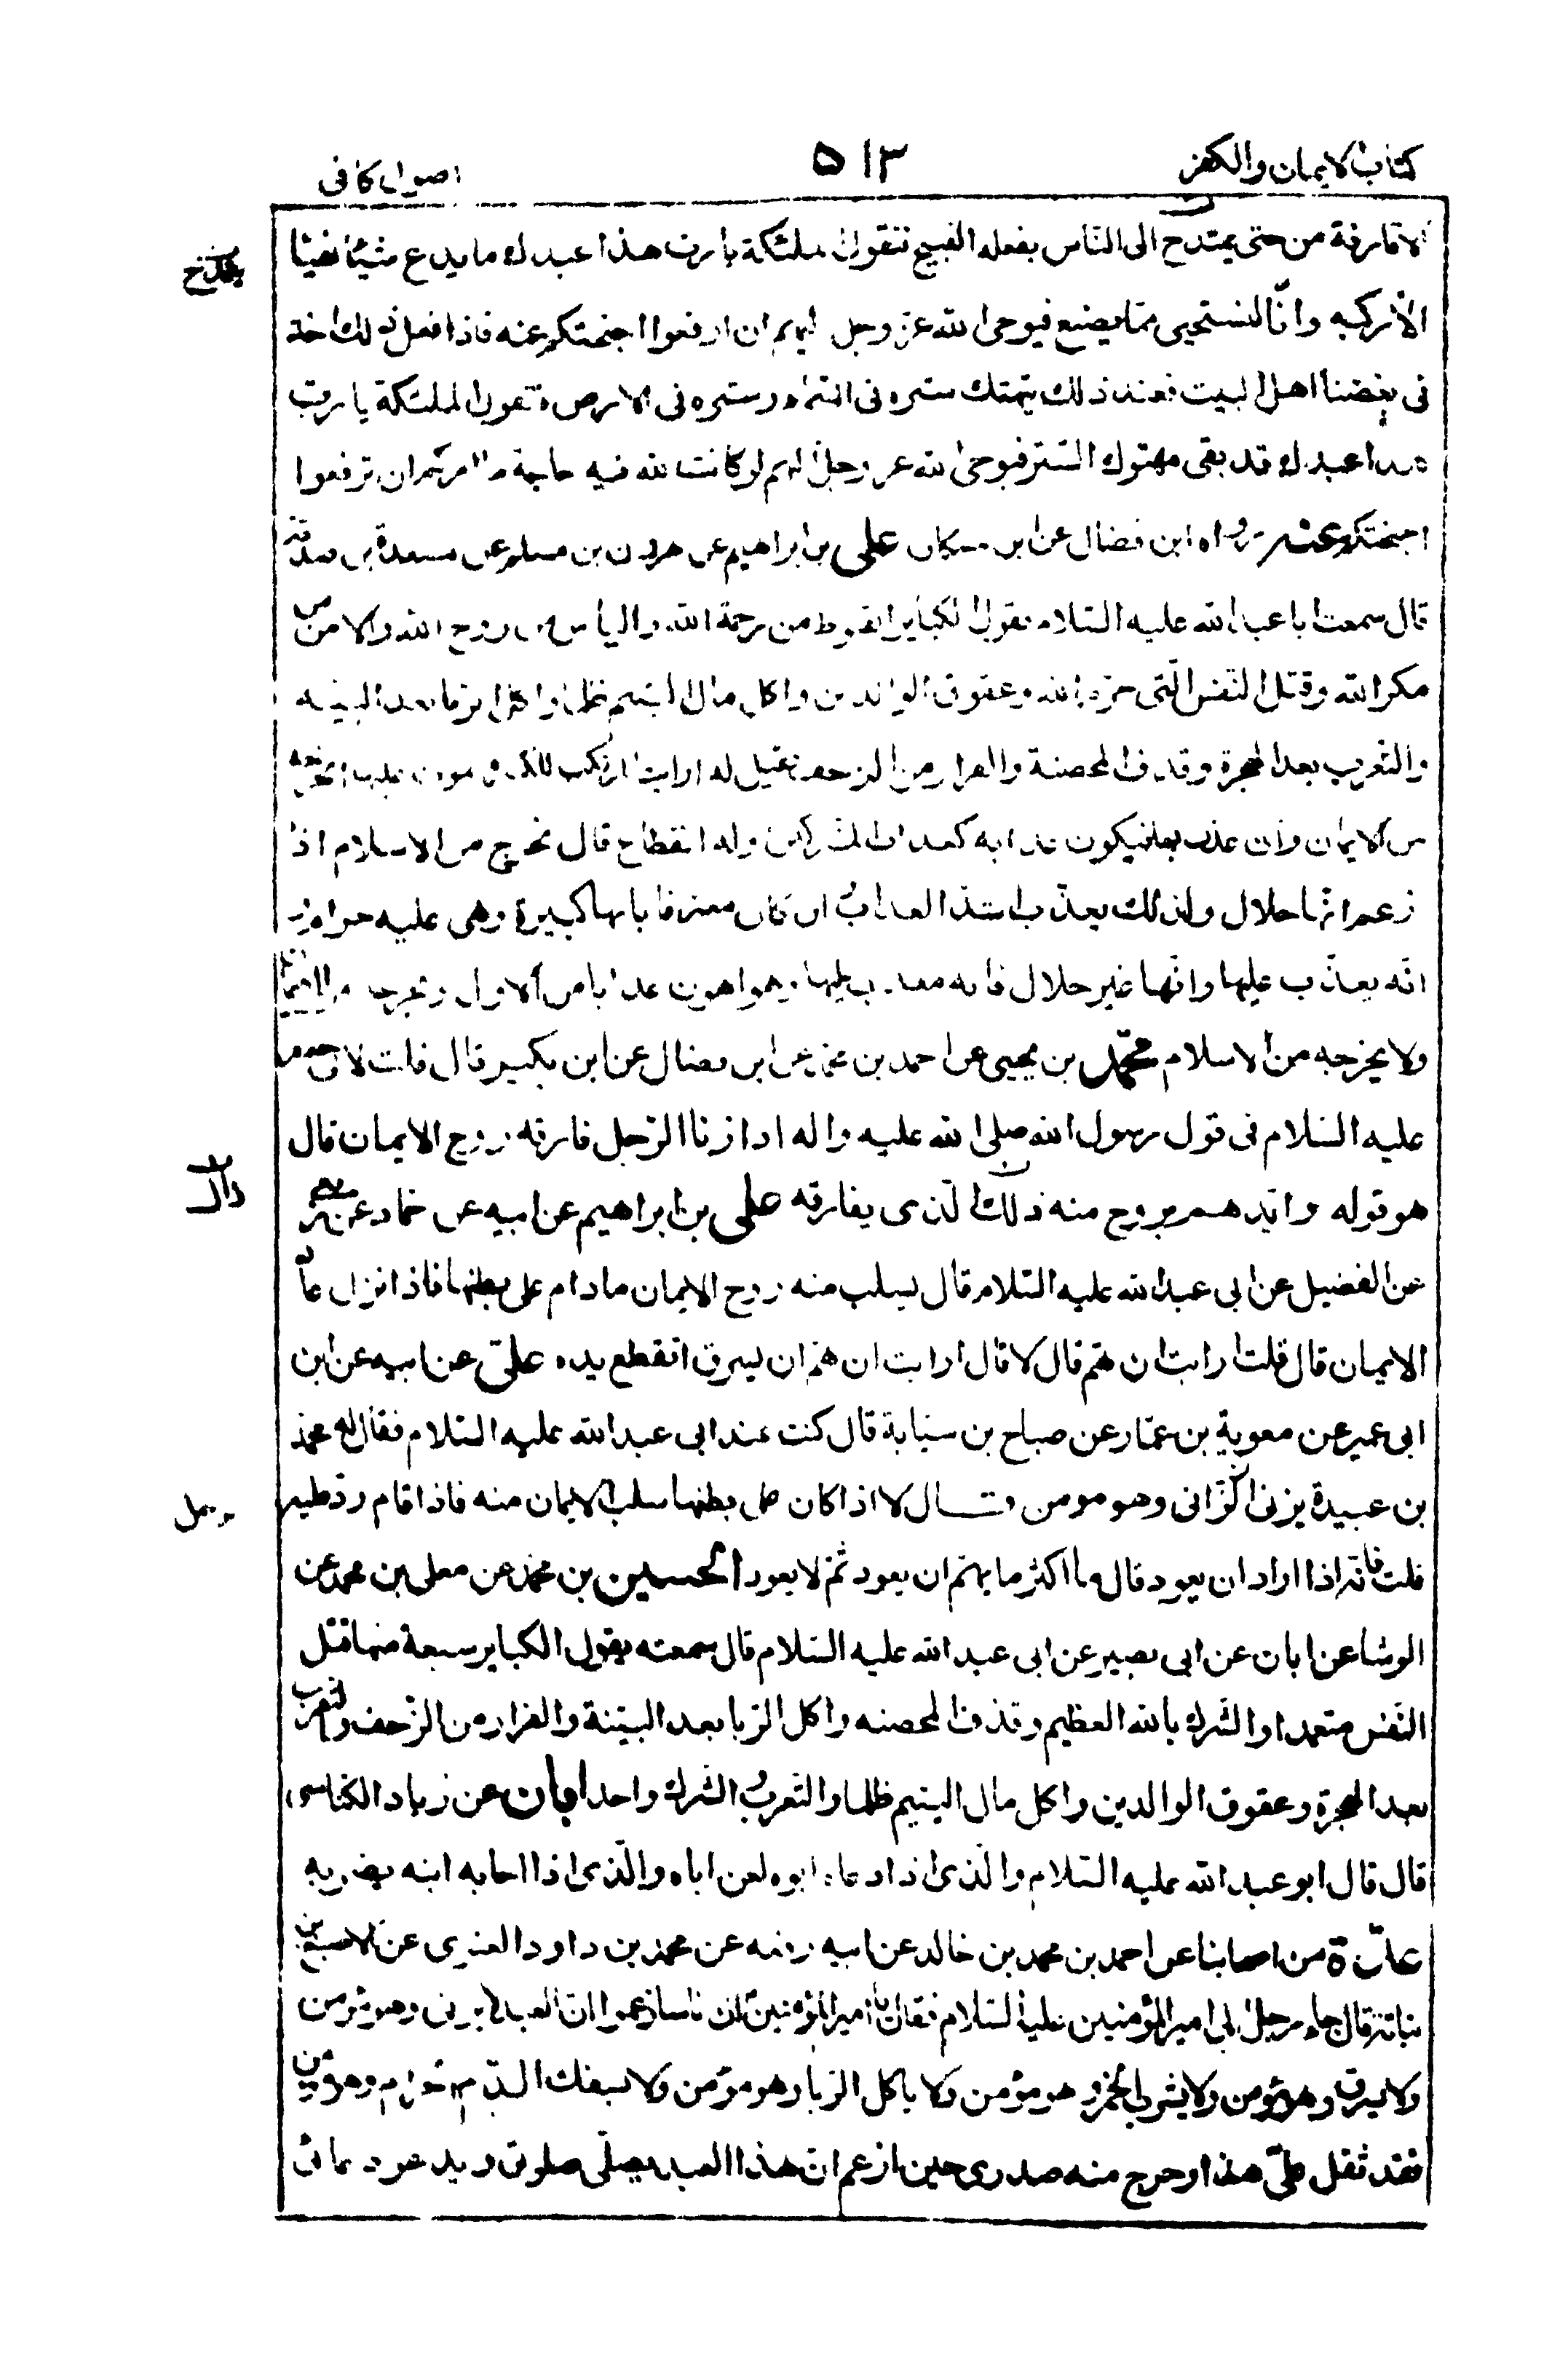 كتاب الايمان والكفر
۵۱۳
اصول كافى
الا قارفة من حتى يمتدح الى الناس بفعله القبيح فتقول الملئكة يا رب هذا عبدك ما يدع شيئا
يمتدح
الا ركبه وانا لنستحيى مما يصنع فيوحى الله عز وجل اليهم ان ارفعوا اجنحتكم عنه فاذا فعل ذلك اخذ
فى بغضنا اهل البيت فعند ذلك ينهتك ستره فى السماء وستره فى الارض فتقول الملئكة يا رب
هذا عبدك قد بقى مهتوك الستر فيوحى الله عز وجل اليهم لو كانت لله فيه حاجة ما امركم ان ترفعوا
اجنحتكم عنه رواه ابن فضال عن ابن مسكان على بن ابراهيم عن هرون بن مسلم عن مسعدة بن صدقة
قال سمعت ابا عبد الله عليه السلام يقول الكباير القنوط من رحمة الله والياس من روح الله والامن من
مكر الله وقتل النفس التى حرم الله وعقوق الوالدين واكل مال اليتيم ظلما واكل الربا بعد البينة
والتعرب بعد الهجرة وقذف المحصنة والفرار من الزحف فقيل له ارايت المرتكب للكبيرة يموت عليها اتخرجه
من الايمان وان عذب بها فيكون عذابه كعذاب المشركين وله انقطاع قال يخرج من الاسلام اذا
زعم انها حلال ولذلك يعذب اشد العذاب ان كان معترفا بانها كبيرة وهى عليه حرام
انه يعذب عليها وانها غير حلال فانه معذب عليها وهو اهون عذابا من الاول ويخرجه من الايمان
ولا يخرجه من الاسلام محمد بن يحيى عن احمد بن محمد عن ابن فضال عن ابن بكير قال قلت لابى جعفر
عليه السلام فى قول رسول الله صلى الله عليه واله اذا زنا الرجل فارقه روح الايمان قال
هو قوله وايدهم بروح منه ذلك الذى يفارقه على بن ابراهيم عن ابيه عن حماد عن
ذاك
عن الفضيل عن ابى عبد الله عليه السلام قال يسلب منه روح الايمان ما دام على بطنها فاذا نزل عاد
الايمان قال قلت ارايت ان هم قال لا قال ارايت ان هم ان يسرق اتقطع يده على عن ابيه عن ابن
ابى عمير عن معوية بن عمار عن صباح بن سيابة قال كنت عند ابى عبد الله عليه السلام فقال له محمد
بن عبيدة يزنى الزانى وهو مومن قال لا اذا كان على بطنها سلب الايمان منه فاذا قام رد عليه
قلت فانه اذا اراد ان يعود قال ما اكثر ما يهم ان يعود ثم لا يعود الحسين بن محمد عن معلى بن محمد عن
الوشا عن ابان عن ابى بصير عن ابى عبد الله عليه السلام قال سمعته يقول الكباير سبعة منها قتل
النفس متعمدا والشرك بالله العظيم وقذف المحصنه واكل الربا بعد البينة والفرار من الزحف والتعرب
بعد الهجرة وعقوق الوالدين واكل مال اليتيم ظلما والتعرب والشرك واحد ابان عن زياد الكناسى
قال قال ابو عبد الله عليه السلام والذى اذا دعاه ابوه لعن اباه والذى اذا اجابه ابنه يضربه
عدة من اصحابنا عن احمد بن محمد بن خالد عن ابيه رفعه عن محمد بن داود الغنوى عن الاصبغ بن
نباتة قال جاء رجل الى امير المؤمنين عليه السلام فقال يا امير المؤمنين ان ناسا زعموا ان العبد لا يزنى وهو مؤمن
ولا يسرق وهو مؤمن ولا يشرب الخمر وهو مؤمن ولا ياكل الربا وهو مؤمن ولا يسفك الدم الحرام وهو مؤمن
فقد ثقل على هذا وحرج منه صدرى حين ازعم ان هذا العبد يصلى صلوتى ويدعو دعائى